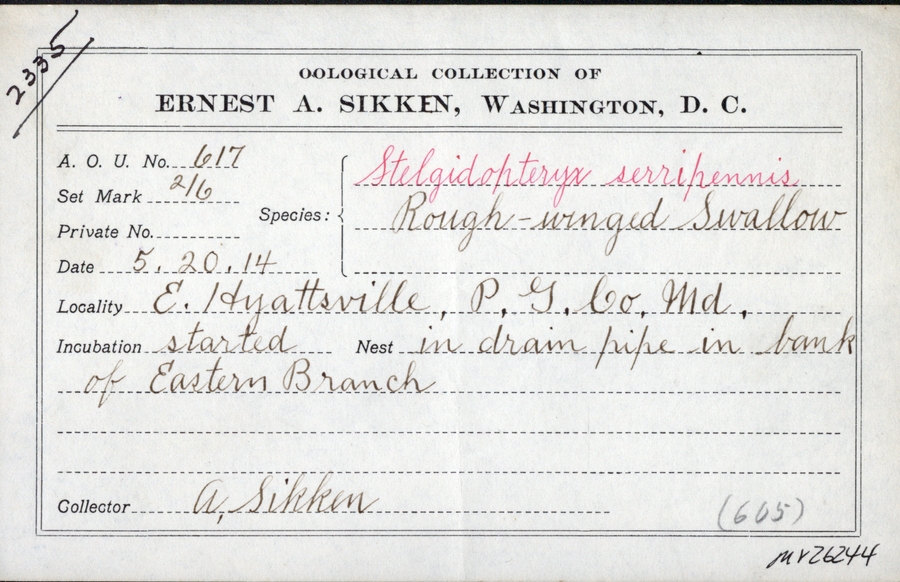 2335
OOLOGICAL COLLECTION OF
ERNEST A. SIKKEN, WASHINGTON, D. C.
A. O. U. No. 617
Set Mark 2/6
Species: Stelgidopteryx serripennis
Rough-winged Swallow
Private No.
Date 5. 20. 14
Locality E. Hyattsville, P. G. Co. Md.
Incubation started Nest in drain pipe in bank
of Eastern Branch
Collector A. Sikken
(605)
MV26244